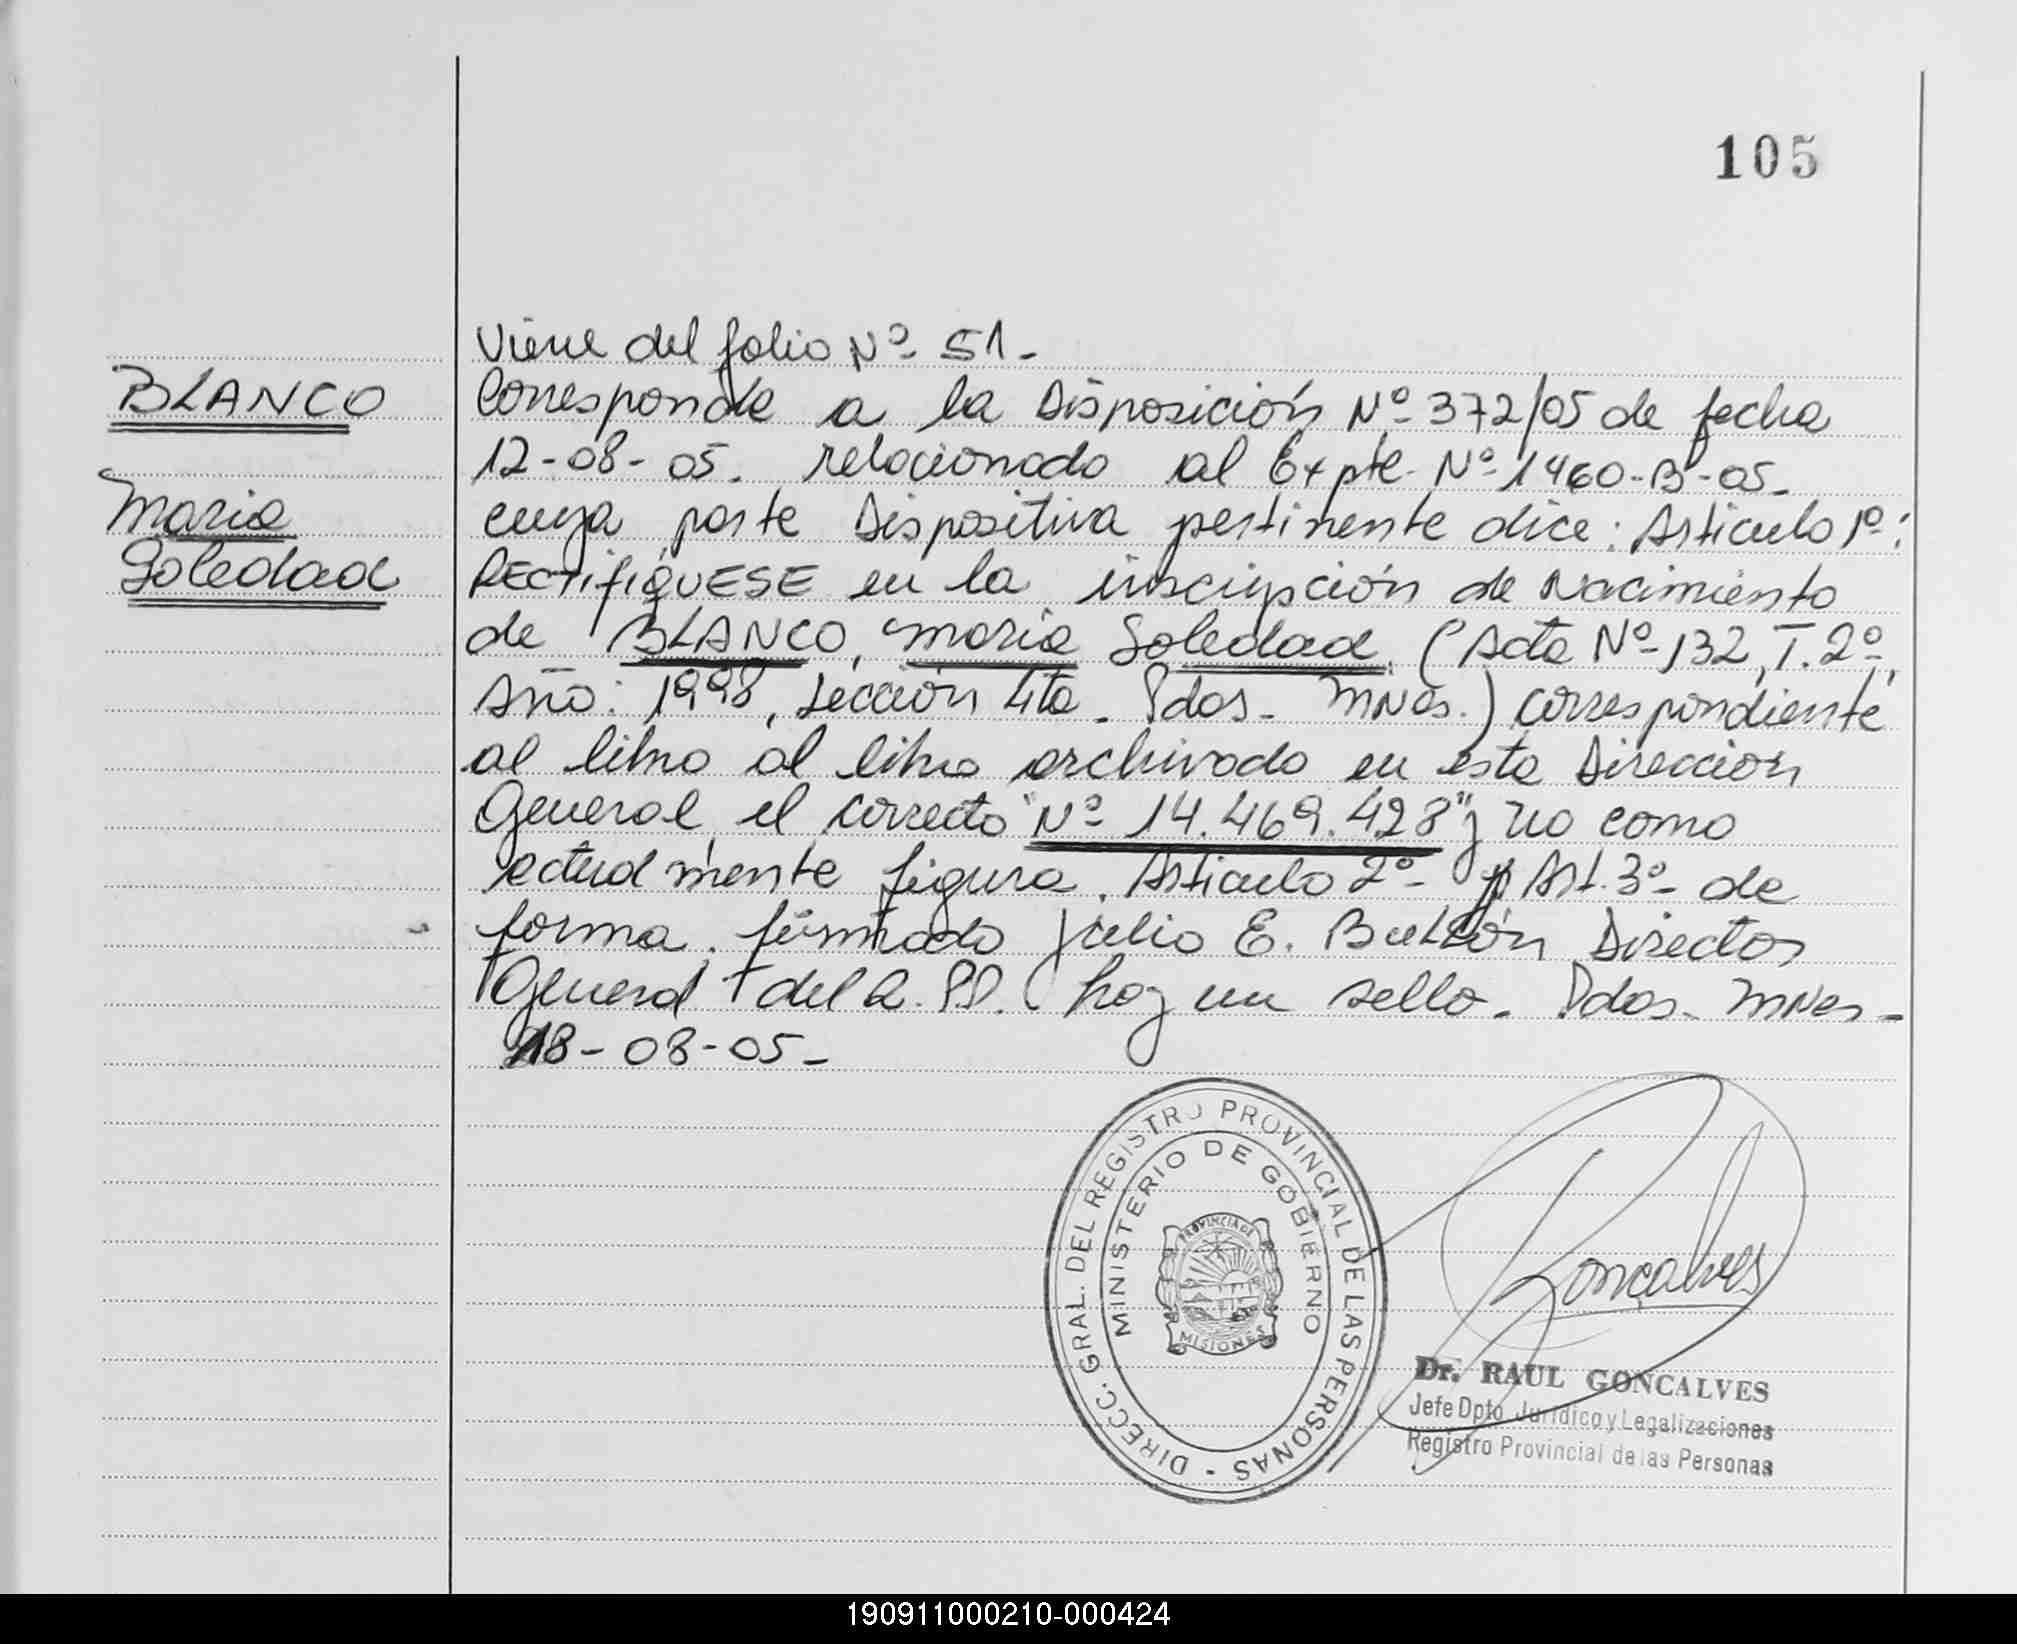 105
Viene del folio Nº 51-
BLANCO
Corresponde a la Disposición Nº 372/05 de fecha
12-08-05. relacionado al Expte. Nº 1460-B-05-
Maria
cuya parte Dispositiva pertinente dice: Articulo 1º:
Soledad
RECTIFIQUESE en la inscripción de Nacimiento
de BLANCO, Maria Soledad. (Acta Nº 132, T. 2º,
Año: 1998, Sección 4ta. Pdas- MNes.) correspondiente
al libro al libro archivado en esta Dirección
General, el correcto "Nº 14.469.428" y no como
actualmente figura. Articulo 2º- y Art. 3º- de
forma. firmado Julio E. Director
General del R.PP. hay un sello. Pdas- MNes-
18-08-05-
DIRECC. GRAL. DEL REGISTRO PROVINCIAL DE LAS PERSONAS -
MINISTERIO DE GOBIERNO
PROVINCIA DE
MISIONES
Goncalves
Dr. RAUL GONCALVES
Jefe Dpto. Jurídico y Legalizaciones
Registro Provincial de las Personas
190911000210-000424